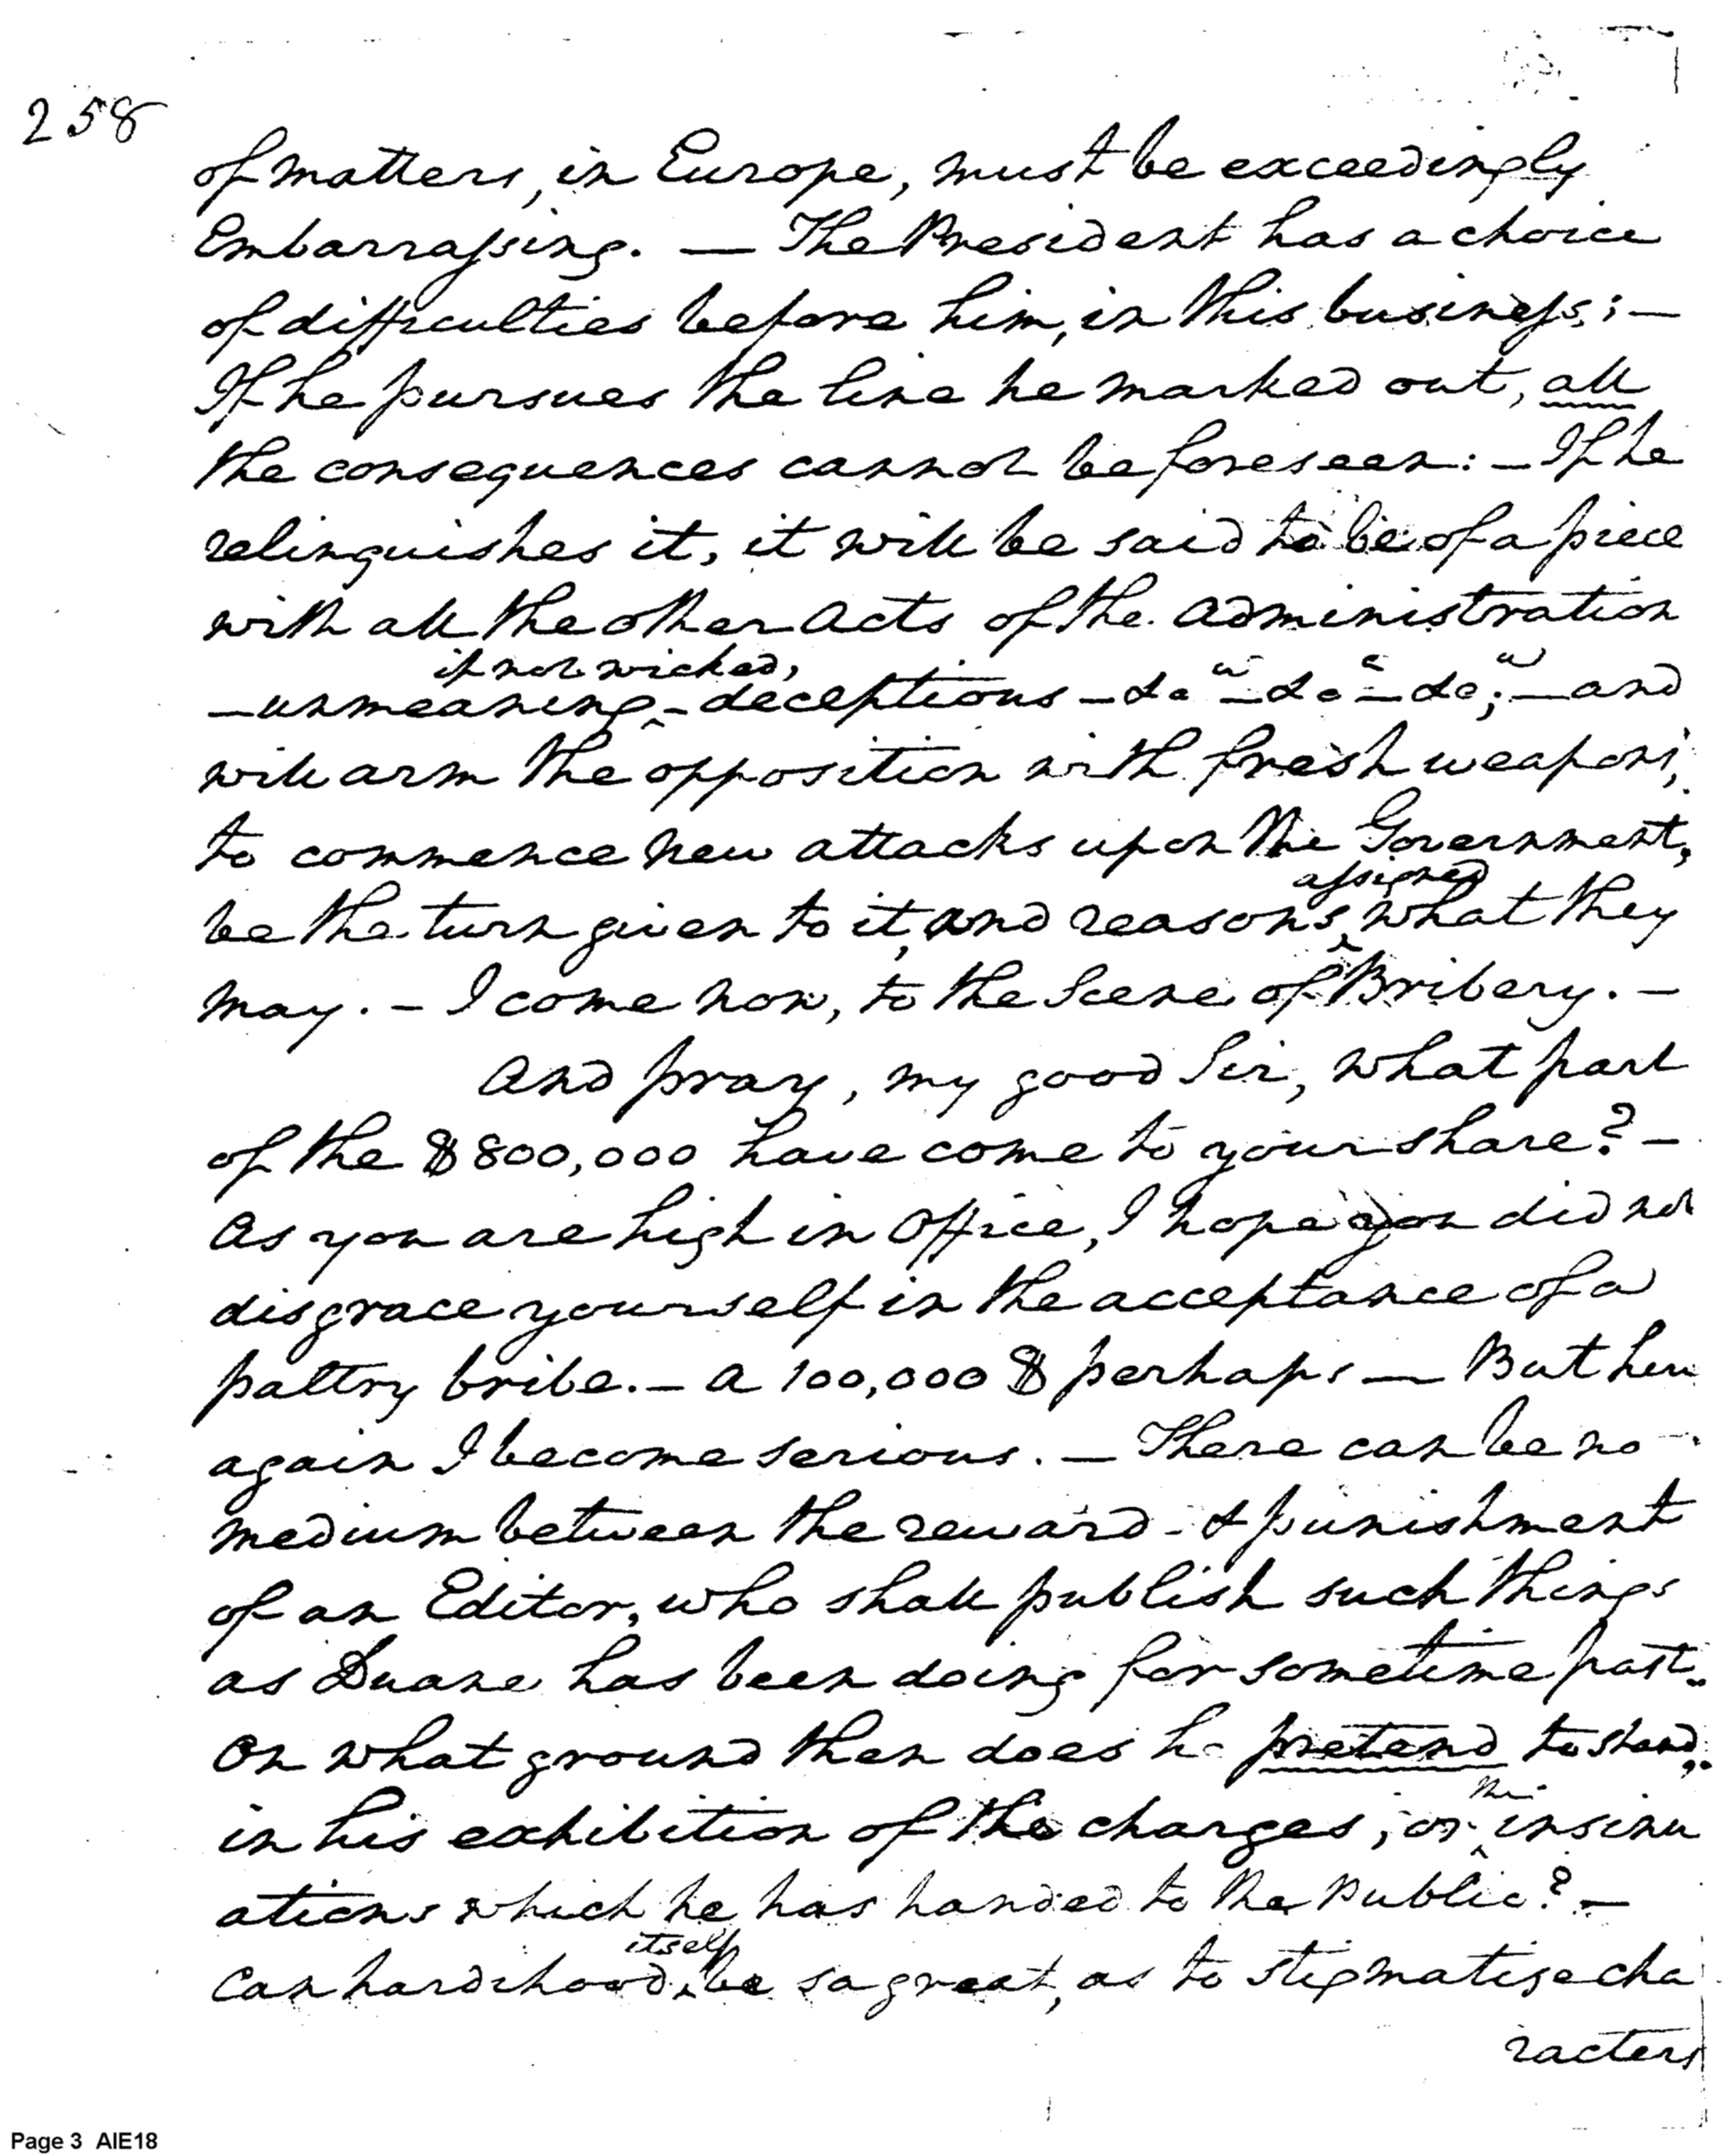 258
of matters, in Europe, must be exceedingly
Embarrassing. — The President has a choice
of difficulties before him, in this business; —
If he pursues the line he marked out, all
the consequences cannot be foreseen: — If he
relinquishes it, it will be said to be of a piece
with all the other acts of the Administration
if not wicked,
— unmeaning ‸ - deceptions — da — de — de; — and
will arm the opposition with fresh weapons,
to commence new attacks upon the Government,
assigned
be the turn given to it, and reasons ‸ what they
may. — I come now, to the Scene of Bribery. —
And pray, my good Sir, what part
of the $800,000 have come to your share? —
As you are high in Office, I hope you did not
disgrace yourself in the acceptance of a
paltry bribe. — a 100,000 $ perhaps — But here
again I become serious. — There can be no
medium between the reward & punishment
of an Editor, who shall publish such things
as Duane has been doing for sometime past.
On what ground then does he pretend to stand,
the
in his exhibition of the charges, or ‸ insinu
ations which he has handed to the Public? —
itself
Can hardihood ‸ be so great, as to stigmatise cha
racters
Page 3 AIE18